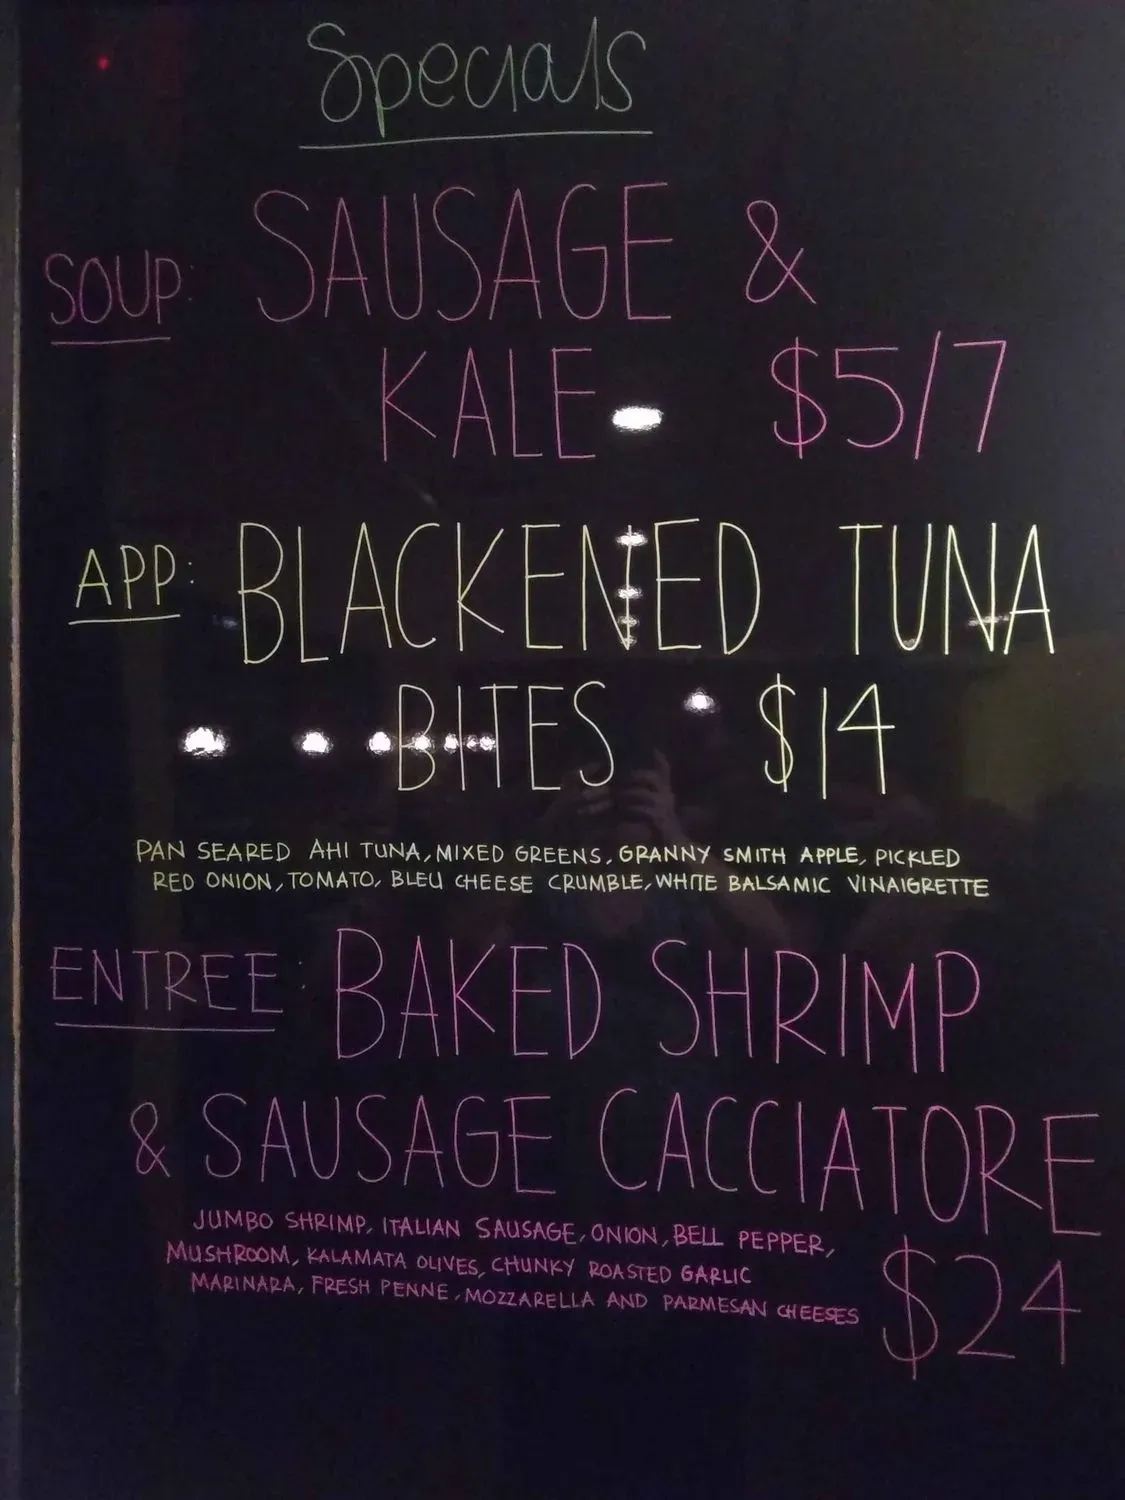 Specials
SOUP: SAUSAGE &
KALE $5/7
APP: BLACKENED TUNA
BITES $14
PAN SEARED AHI TUNA, MIXED GREENS, GRANNY SMITH APPLE, PICKLED
RED ONION, TOMATO, BLEU CHEESE CRUMBLE, WHITE BALSAMIC VINAIGRETTE
ENTREE: BAKED SHRIMP
& SAUSAGE CACCIATORE
JUMBO SHRIMP, ITALIAN SAUSAGE, ONION, BELL PEPPER,
MUSHROOM, KALAMATA OLIVES, CHUNKY ROASTED GARLIC
MARINARA, FRESH PENNE, MOZZARELLA AND PARMESAN CHEESES
$24